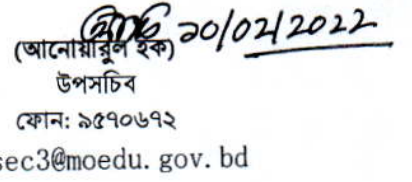 ২০/০২/2022
(আনোয়ারুল হক)
উপসচিব
ফোন: ৯৫৭০৬৭২
sec3@moedu.gov.bd